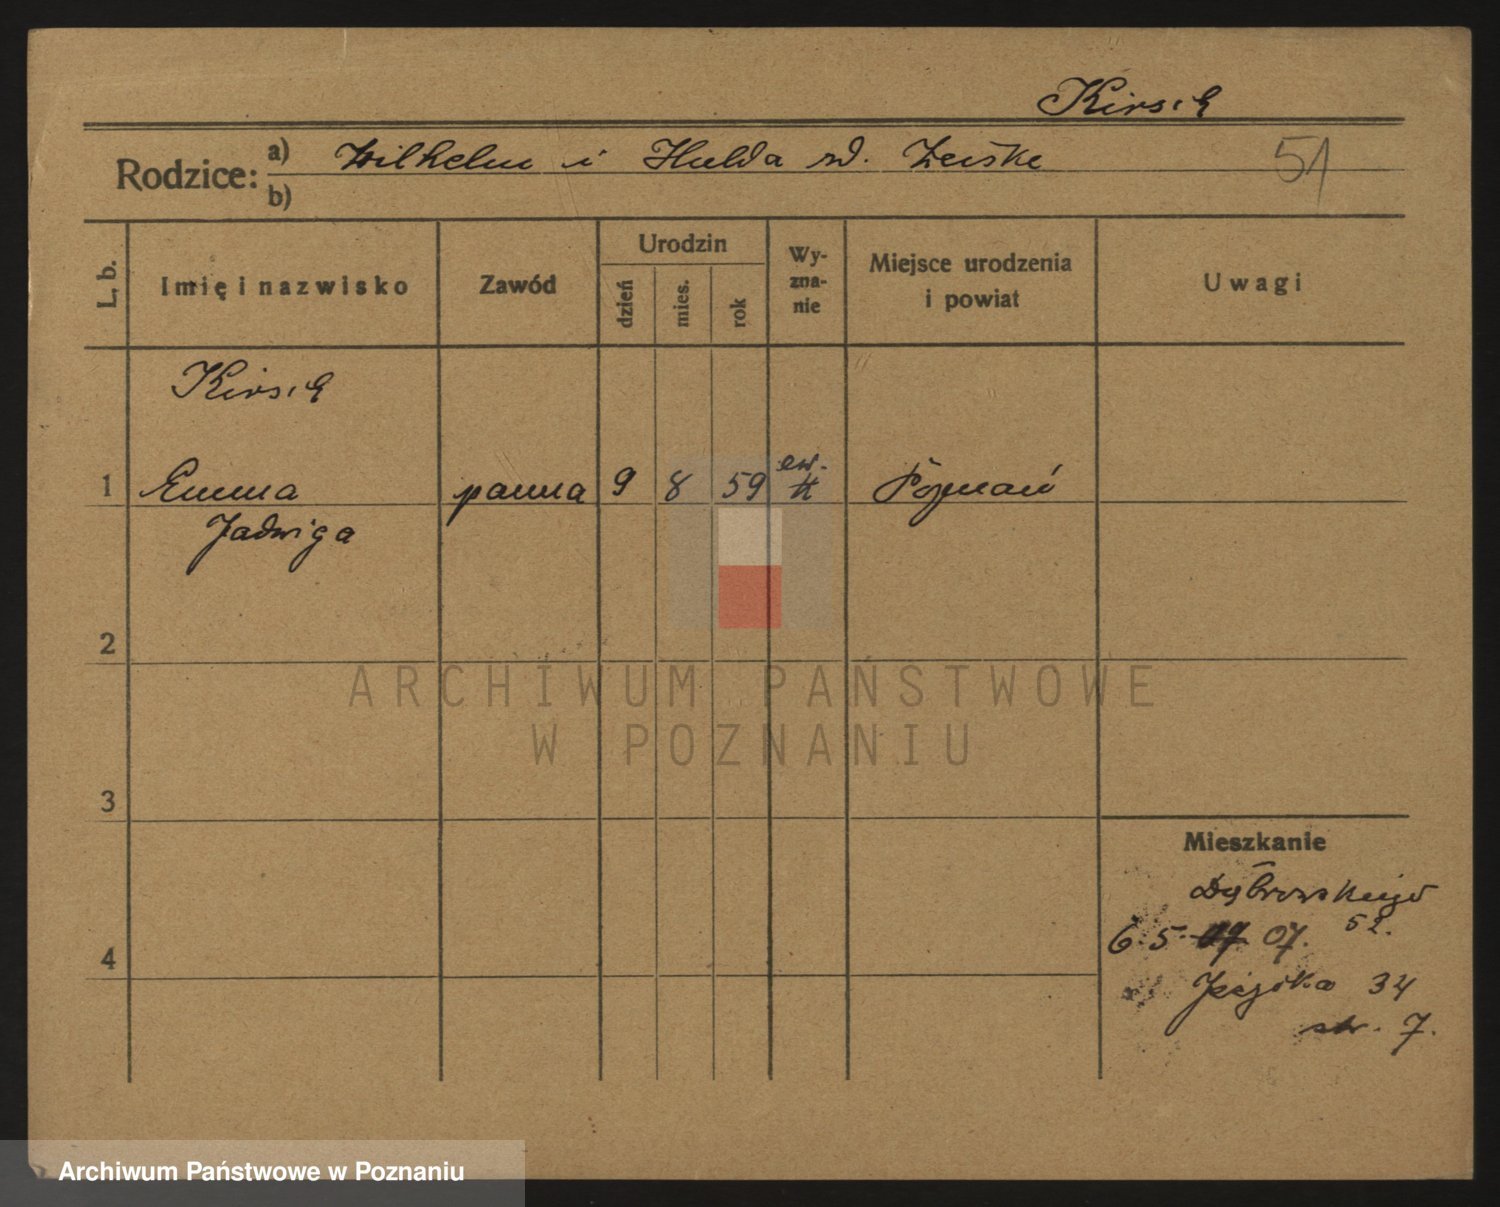 Kirsch
Rodzice:
a) Wilhelm i Hulda
b)
51
L. b.
Imię i nazwisko
Zawód
Urodzin
dzień
mies.
rok
Wy-
zna-
nie
Miejsce urodzenia
i powiat
Uwagi
Kirsch
1 Emma panna 9 8 59 ew. Poznań
Jadwiga
2
3
4
ARCHIWUM PAŃSTWOWE
W POZNANIU
Mieszkanie
Dąbrowskiego
52.
6.5. 07.
34
7.
Archiwum Państwowe w Poznaniu